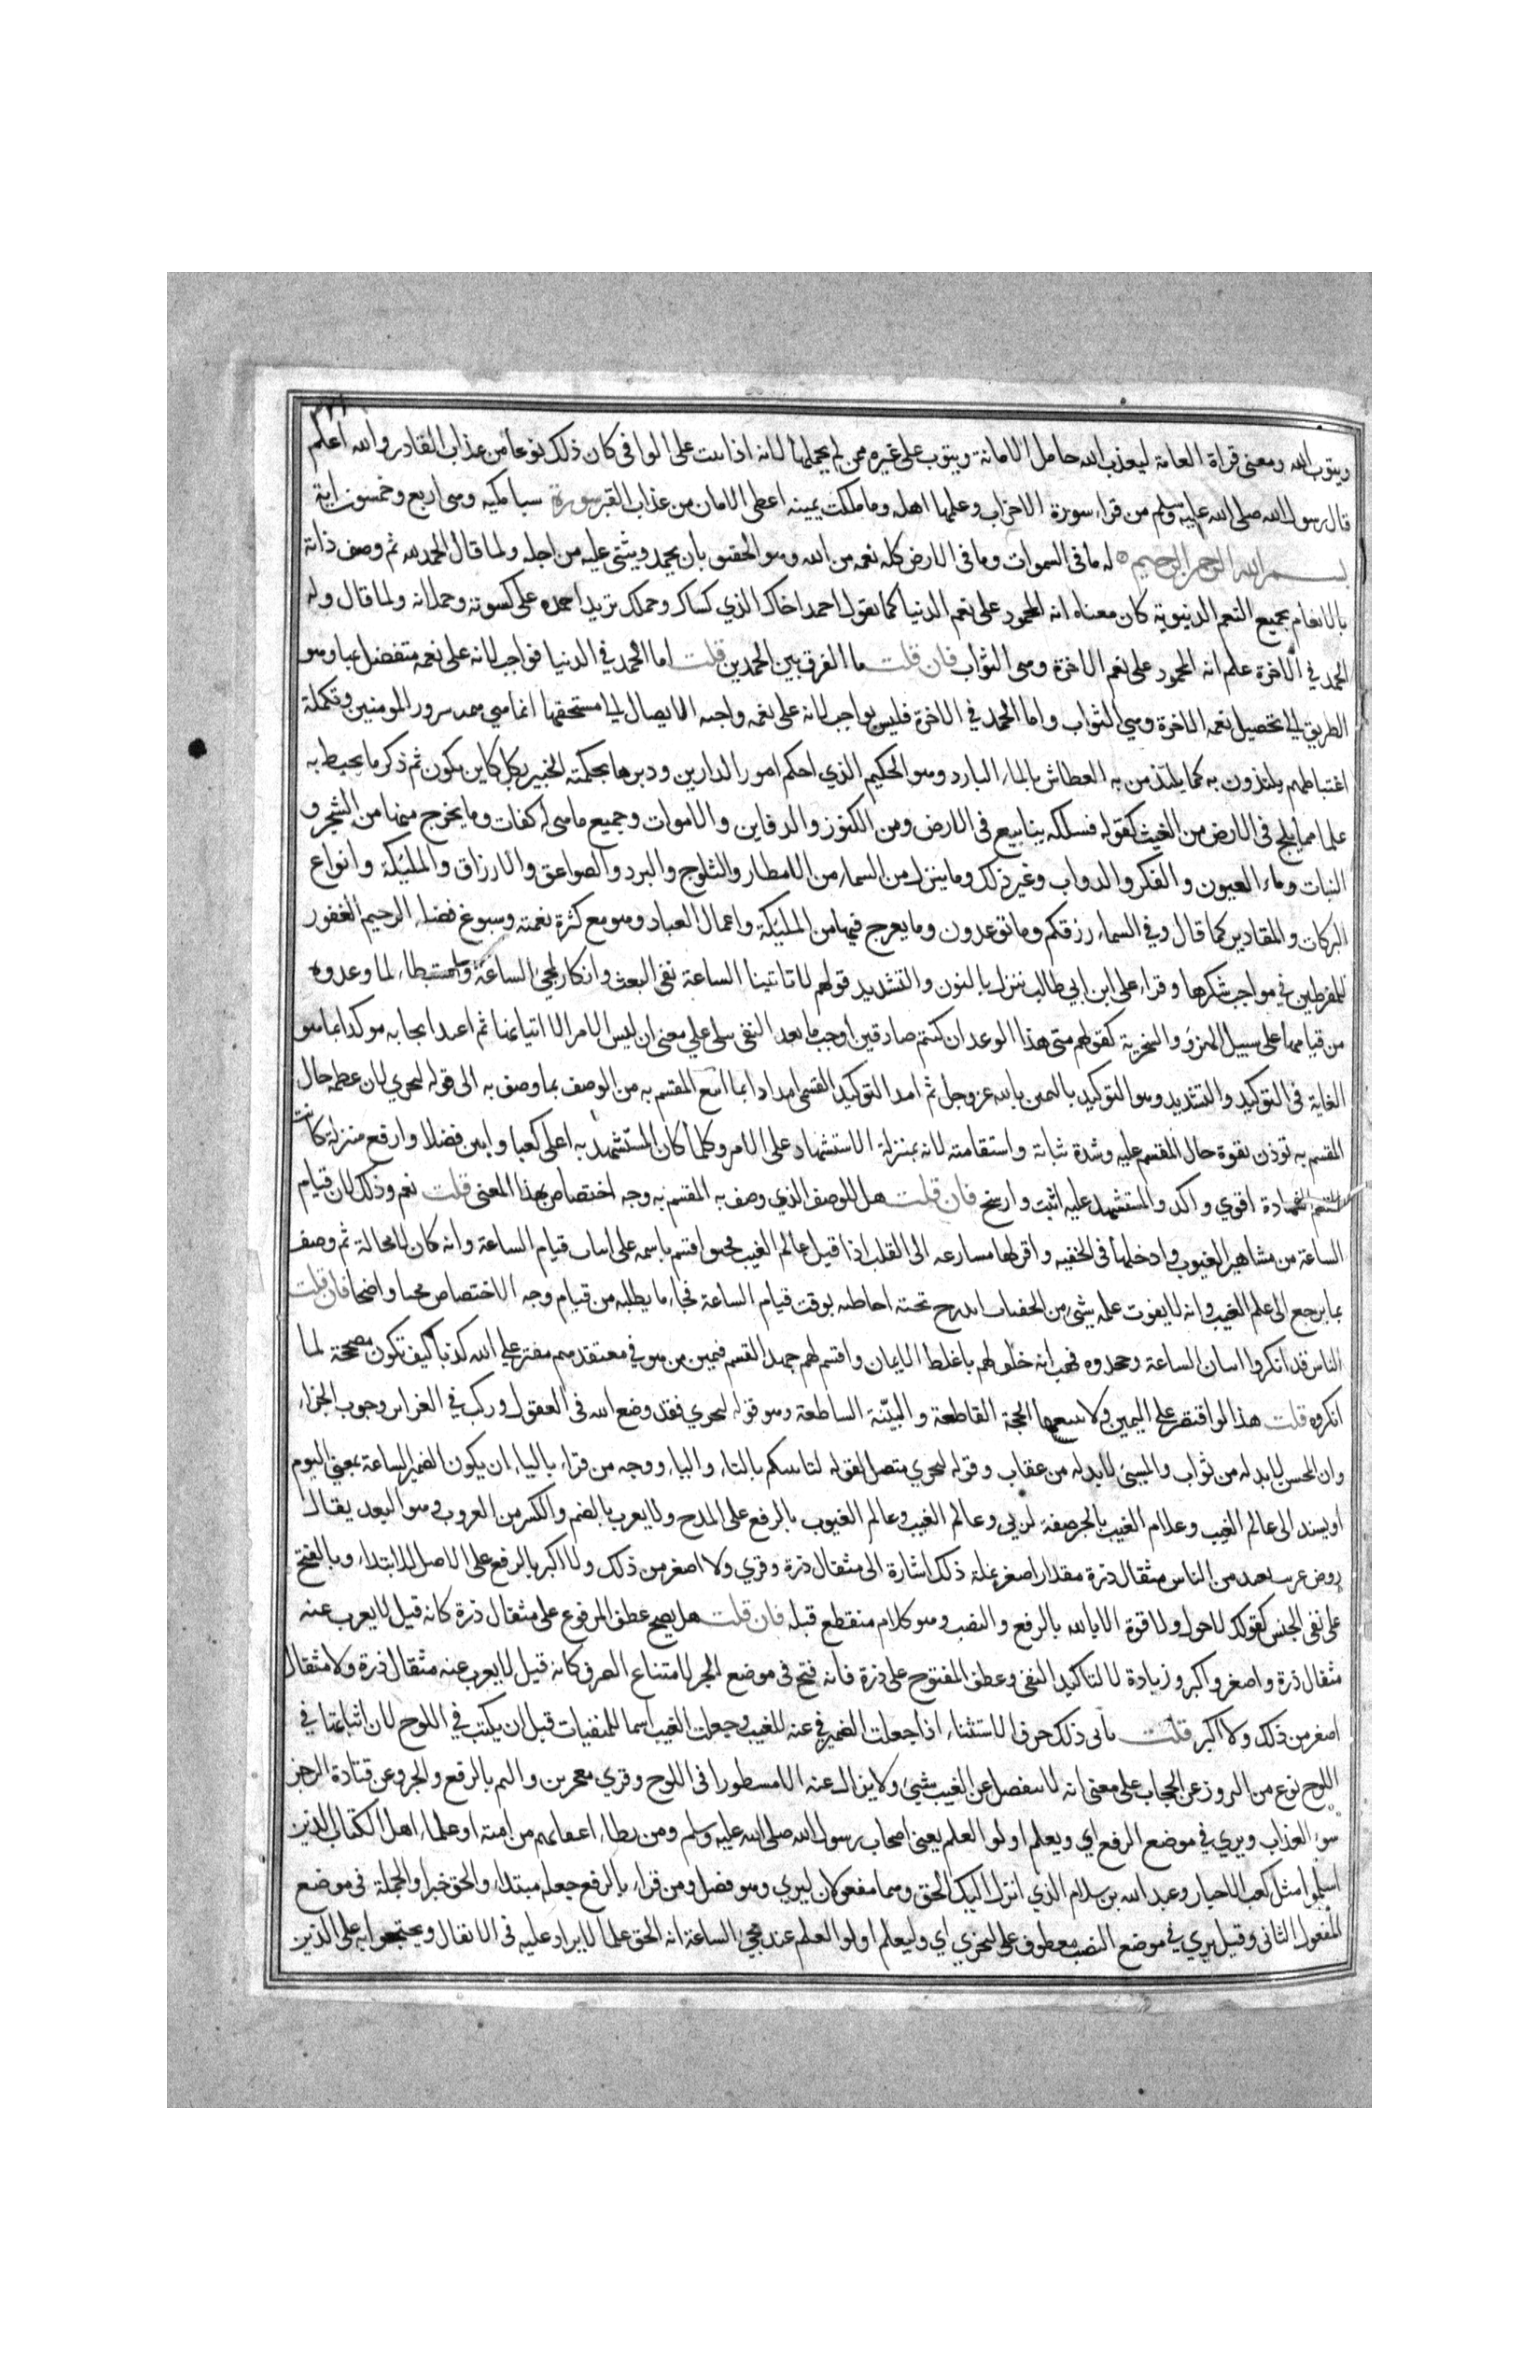 ٣٢١
ويتوب الله ومعنى قراة العامة ليعذب الله حامل الامانة ويتوب على غيره ممن لم يحملها لانه اذا تيب على الوافى كان ذلك نوعا من عذاب القادر والله اعلم
قال رسول الله صلى الله عليه وسلم من قراء سورة الاحزاب وعلمها اهله وما ملكت يمينه اعطى الامان من عذاب القبر سورة سبا مكيه وهى اربع وخمسون اية
بسم الله الرحمن الرحيم له ما فى السموات وما فى الارض كله نعمه من الله وهو الحقيق بان يحمد ويثنى عليه من اجله ولما قال الحمد لله ثم وصف ذاته
بالانعام بجميع النعم الدنيوية كان معناه انه المحمود على نعم الدنيا كما تقول احمد اخاك الذي كساك وحملك تريد احمده على كسوته وحملانه ولما قال وله
الحمد في الاخرة علم انه المحمود على نعم الاخرة وهى الثواب فان قلت ما الفرق بين الحمدين قلت اما الحمد في الدنيا فواجب لانه على نعمة متفضل بها وهو
الطريق الى تحصيل نعمه الاخرة وهي الثواب واما الحمد في الاخرة فليس بواجب لانه على نعمه واجبه الايصال الى مستحقها انما هي تتمه سرور المومنين وتكملة
اغتباطهم يلتذون به كما يلتذ من به العطاش بالماء البارد وهو الحكيم الذي احكم امور الدارين ودبرها بحكمته الخبير بكل كاين يكون ثم ذكر ما يحيط به
علما مما يلج فى الارض من الغيث كقوله فسلكه ينابيع فى الارض ومن الكنوز والدفاين والاموات وجميع ما هى له كفات وما يخرج منها من الشجر و
النبات وماء العيون و الفكر والدواب وغير ذلك وما ينزل من السماء من الامطار والثلوج والبرد والصواعق والارزاق والمليكة وانواع
البركات والمقادير كما قال وفي السماء رزقكم وما توعدون وما يعرج فيها من المليكة واعمال العباد وهو مع كثرة نعمته وسبوغ فضله الرحيم الغفور
للمفرطين في مواجب شكرها وقراء على ابن ابي طالب ننزل بالنون والتشديد قولهم لا تاتينا الساعة نفى البعث وانكار لمجي الساعة واستبطاء لما وعدوه
من قيامها على سبيل الهزؤ والسخرية كقولهم متى هذا الوعد ان كنتم صادقين اوجب ما بعد النفى ببلى على معنى ان ليس الامر الا اتيانها ثم اعيد ايجابه موكدا بما هو
الغاية فى التوكيد والتشديد وهو التوكيد باليمين بالله عز وجل ثم امد التوكيد القسمى امدادا بما اتبع المقسم به من الوصف بما وصف به الى قوله ليجزي لان عظمة حال
المقسم به توذن بقوة حال المقسم عليه وشدة ثباته واستقامته لانه بمنزلة الاستشهاد على الامر وكلما كان المستشهد به اعلى كعبا وابين فضلا وارفع منزلة كانت
الشهادة اقوي واكد والمستشهد عليه اثبت وارسخ فان قلت هل للوصف الذي وصف به المقسم به وجه اختصاص بهذا المعنى قلت نعم وذلك لان قيام
الساعة من مشاهير الغيوب وادخلها فى الخفيه واقرلها مسارعه الى القلب اذا قيل عالم الغيب فحين اقسم باسمه على اثبات قيام الساعة وانه كان لا محالة ثم وصف
بما يرجع الى علم الغيب وانه لا يفوت علمه شيئ من الخفيات اندرج تحته احاطته بوقت قيام الساعة فجاء ما يطلبه من قيام وجه الاختصاص مجيا واضحا فان قلت
الناس قد انكروا اتيان الساعة وجحدوه فهب انه حلف لهم باغلظ الايمان واقسم لهم جهد القسم فيمين من هو في معتقدهم مفتر على الله كذبا كيف تكون مصححة لما
انكروه قلت هذا لو اقتصر على اليمين ولا يتبعها الحجة القاطعة والبينة الساطعة وهو قوله ليجزي فقد وضع الله فى العقول وركب في الغرايز وجوب الجزاء
وان المحسن لابد له من ثواب والمسيئ لابد له من عقاب وقوله ليجزي متصل بقوله لتاتينكم بالتاء والياء ووجه من قراء بالياء ان يكون الضمير للساعة بمعنى اليوم
او يسند الى عالم الغيب وعلام الغيب بالجر صفة لربي وعالم الغيب وعالم الغيوب بالرفع على المدح ولا يعزب بالضم والكسر من العزوب وهو البعد يقال
روض عزيب بعيد من الناس مثقال ذرة مقدار اصغر نملة ذلك اشارة الى مثقال ذرة وقري ولا اصغر من ذلك ولا اكبر بالرفع على الاصل للابتداء وبالفتح
على نفى الجنس كقولك لا حول ولا قوة الا بالله بالرفع والنصب وهو كلام منقطع قبله فان قلت هل يصح عطف المرفوع على مثقال ذرة كانه قيل لا يعزب عنه
مثقال ذرة واصغر واكبر وزيادة لا لتاكيد النفى وعطف المفتوح على ذرة فانه فتح فى موضع الجر لامتناع الصرف كانه قيل لا يعزب عنه مثقال ذرة ولا مثقال
اصغر من ذلك ولا اكبر قلت يابى ذلك حرف الاستثناء اذا جعلت الضمير في عنه للغيب وجعلت الغيب اسما للمغيبات قبل ان يكتب في اللوح لان اثباتها في
اللوح نوع من البروز عن الحجاب على معنى انه لا ينفصل عن الغيب شيئ ولا يزال عنه الا مسطورا فى اللوح وقري معجزين واليم بالرفع والجر وعن قتادة الرجز
سوء العذاب ويري في موضع الرفع اي ويعلم اولو العلم يعنى اصحاب رسول الله صلى الله عليه وسلم ومن يطاء اعقابهم من امته او علماء اهل الكتاب الذين
اسلموا مثل كعب الاحبار وعبد الله بن سلام الذي انزل اليك الحق وهما مفعولان ليري وهو فصل ومن قراء بالرفع جعله مبتداء والحق خبرا والجملة فى موضع
المفعول الثانى وقيل يري في موضع النصب معطوف على ليجزي اي وليعلم اولو العلم عند مجئ الساعة انه الحق علما لا يراد عليه فى الايقان ويحتجوا به على الذين